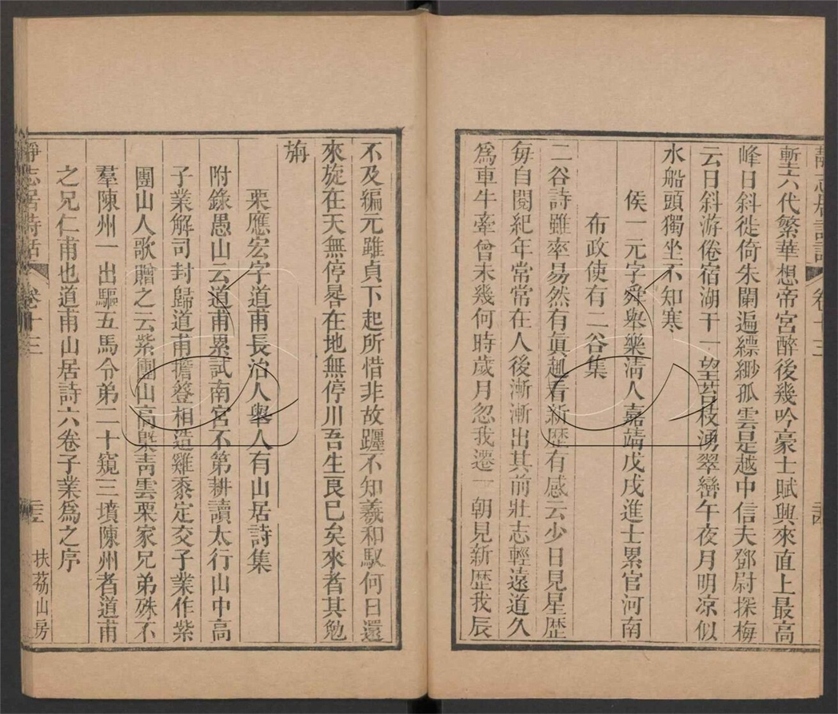 塹六代繁華想帝宮醉後幾吟豪士賦興來直上最高
峰日斜徙倚朱闌遍縹緲孤雲是越中信夫鄧尉探梅
云日斜游倦宿湖干一望苔枝湧翠巒午夜月明凉似
水船頭獨坐不知寒
侯一元字舜舉樂淸人嘉靖戊戌進士累官河南
布政使有二谷集
二谷詩雖率易然有眞趣看新歷有感云少日見星歷
每自閱紀年常常在人後漸漸出其前壯志輕遠道久
爲車牛牽曾未幾何時歲月忽我遷一朝見新歷我辰
靜志居詩話 卷十三
不及編元雖貞下起所惜非故躔不知羲和馭何日還
來旋在天無停晷在地無停川吾生良已矣來者其勉
旃
栗應宏字道甫長治人舉人有山居詩集
附錄愚山云道甫累試南宮不第耕讀太行山中高
子業解司封歸道甫擔簦相造雞黍定交子業作紫
團山人歌贈之云紫團山高槩靑雲栗家兄弟殊不
羣陳州一出驅五馬令弟二十窺三墳陳州者道甫
之兄仁甫也道甫山居詩六卷子業爲之序
靜志居詩話 卷十三
扶荔山房